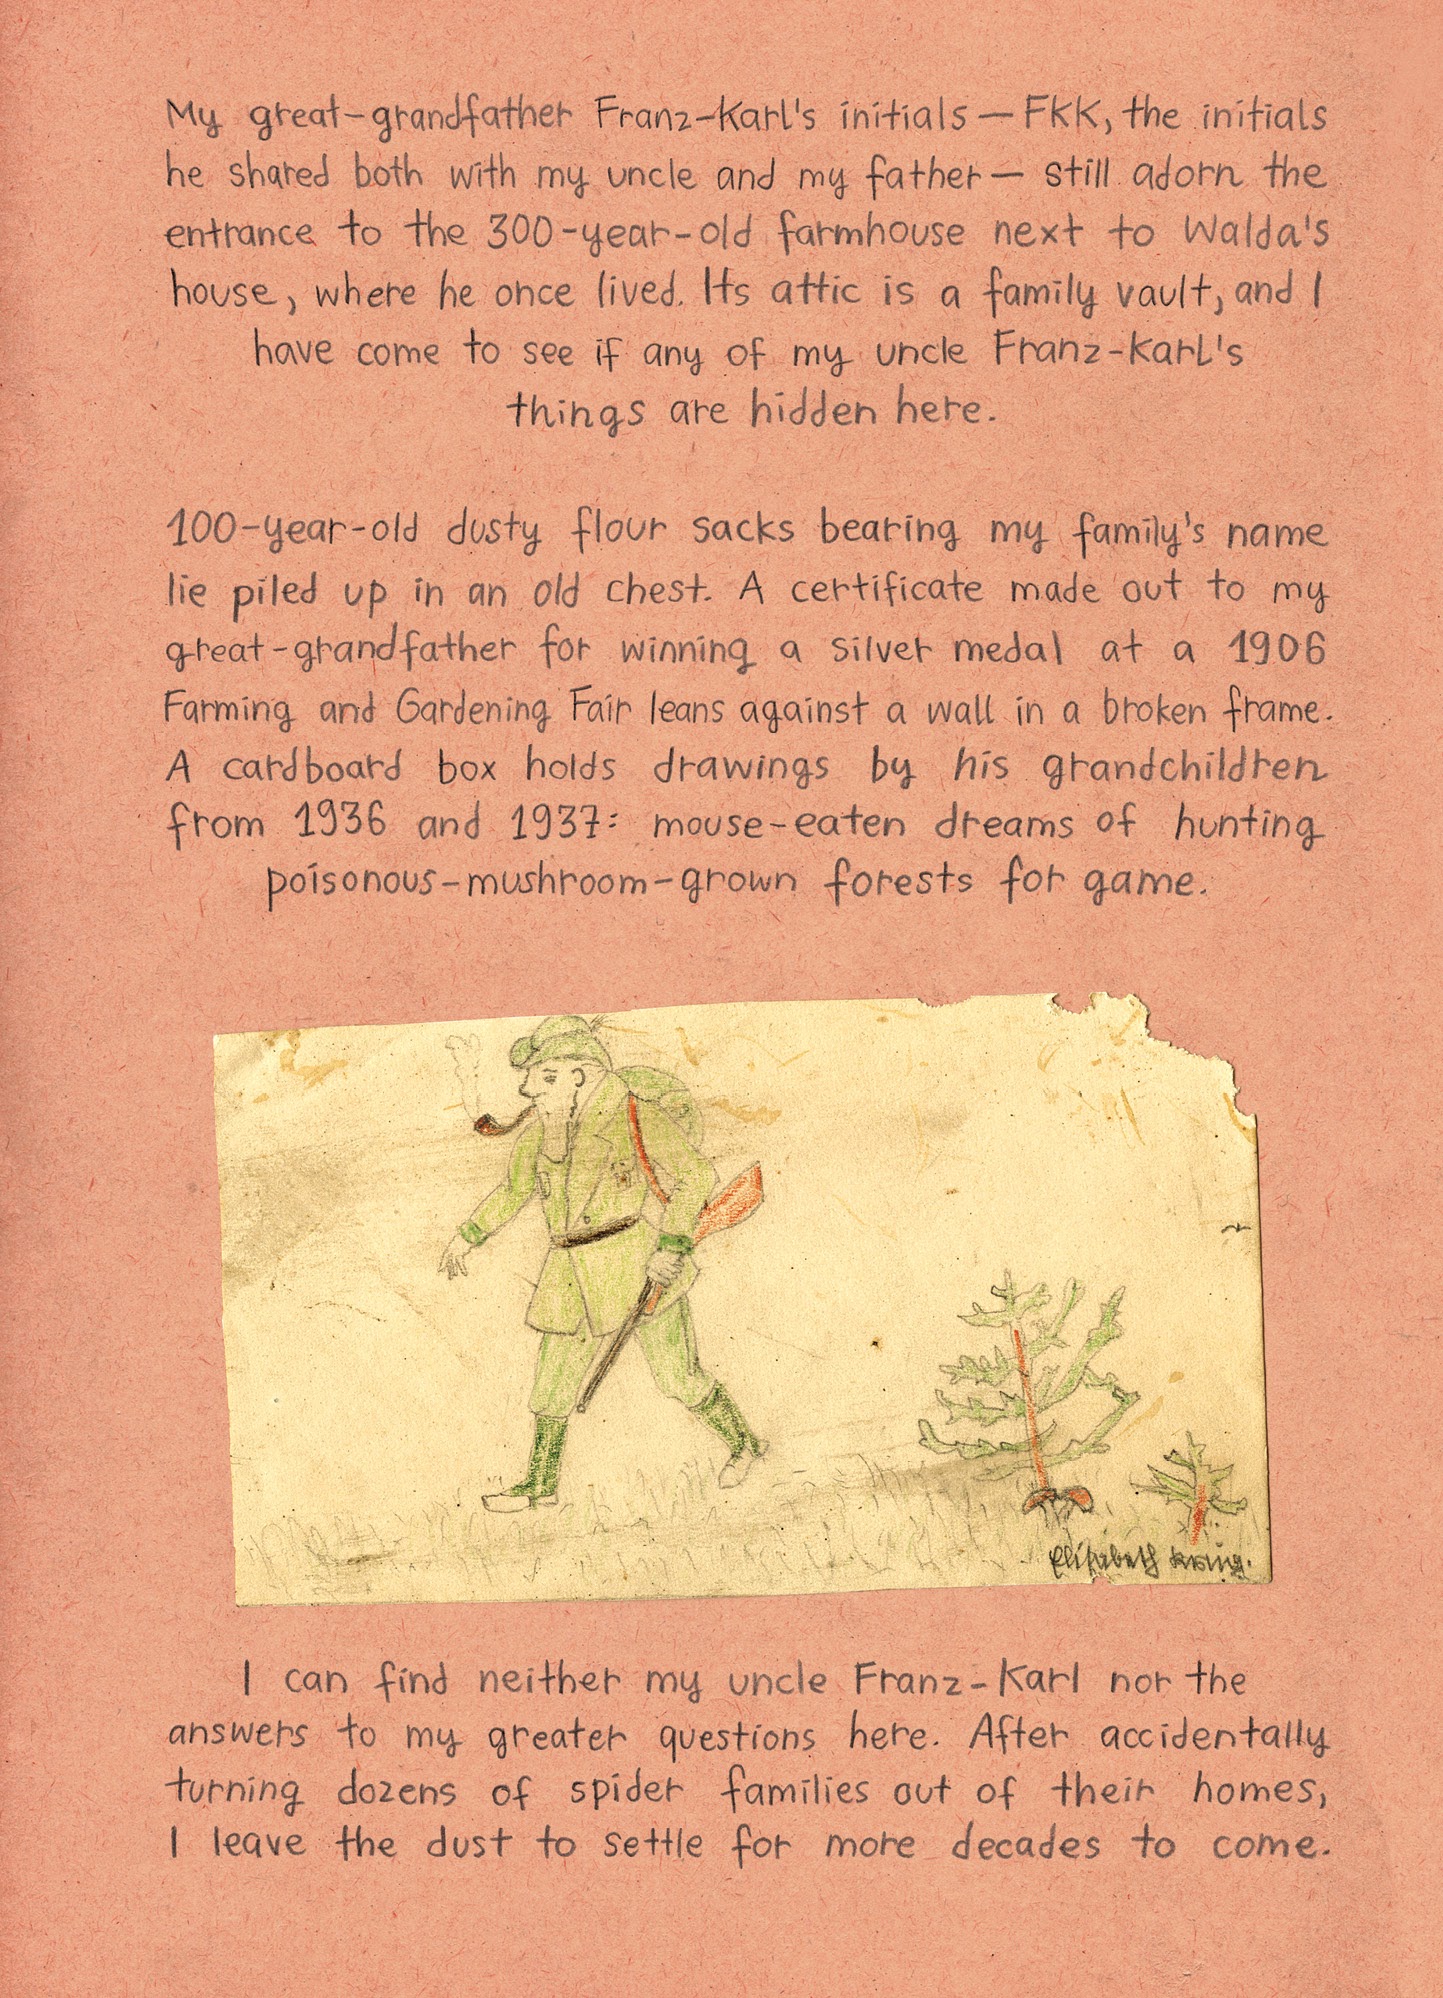 My great-grandfather Franz-Karl's initials — FKK, the initials
he shared both with my uncle and my father — still adorn the
entrance to the 300-year-old farmhouse next to Walda's
house, where he once lived. Its attic is a family vault, and I
have come to see if any of my uncle Franz-Karl's
things are hidden here.
100-year-old dusty flour sacks bearing my family's name
lie piled up in an old chest. A certificate made out to my
great-grandfather for winning a silver medal at a 1906
Farming and Gardening Fair leans against a wall in a broken frame.
A cardboard box holds drawings by his grandchildren
from 1936 and 1937: mouse-eaten dreams of hunting
poisonous-mushroom-grown forests for game.
Elisabeth Krug.
I can find neither my uncle Franz-Karl nor the
answers to my greater questions here. After accidentally
turning dozens of spider families out of their homes,
I leave the dust to settle for more decades to come.